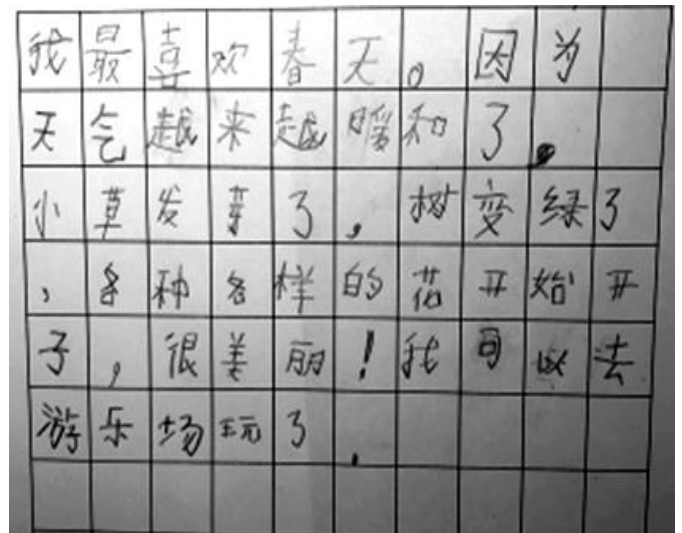 我最喜欢春天。因为
天气越来越暖和了。
小草发芽了，树变绿了
，各种各样的花开始开
了，很美丽！我可以去
游乐场玩了.